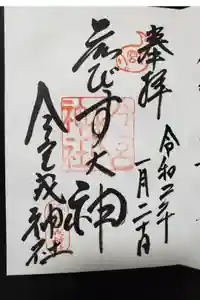 奉拝
令和二年
一月二十日
ゑびす大神
今宮戎神社